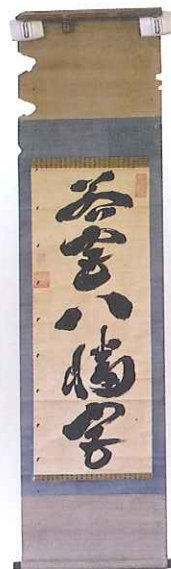 若宮八幡宮